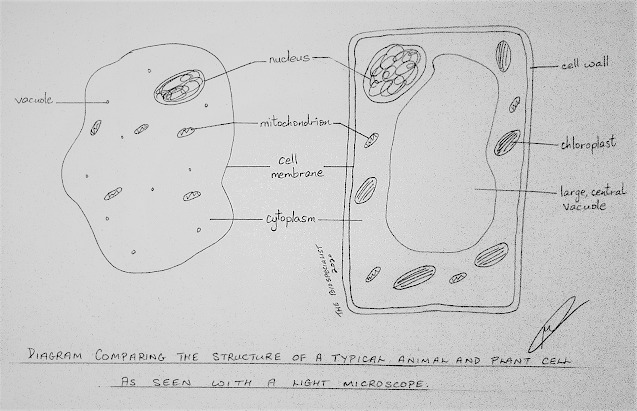 nucleus
cell wall
vacuole
mitochondrion
chloroplast
cell
membrane
large, central
vacuole
cytoplasm
THE BIOLOGIST
DIAGRAM COMPARING THE STRUCTURE OF A TYPICAL ANIMAL AND PLANT CELL
AS SEEN WITH A LIGHT MICROSCOPE.